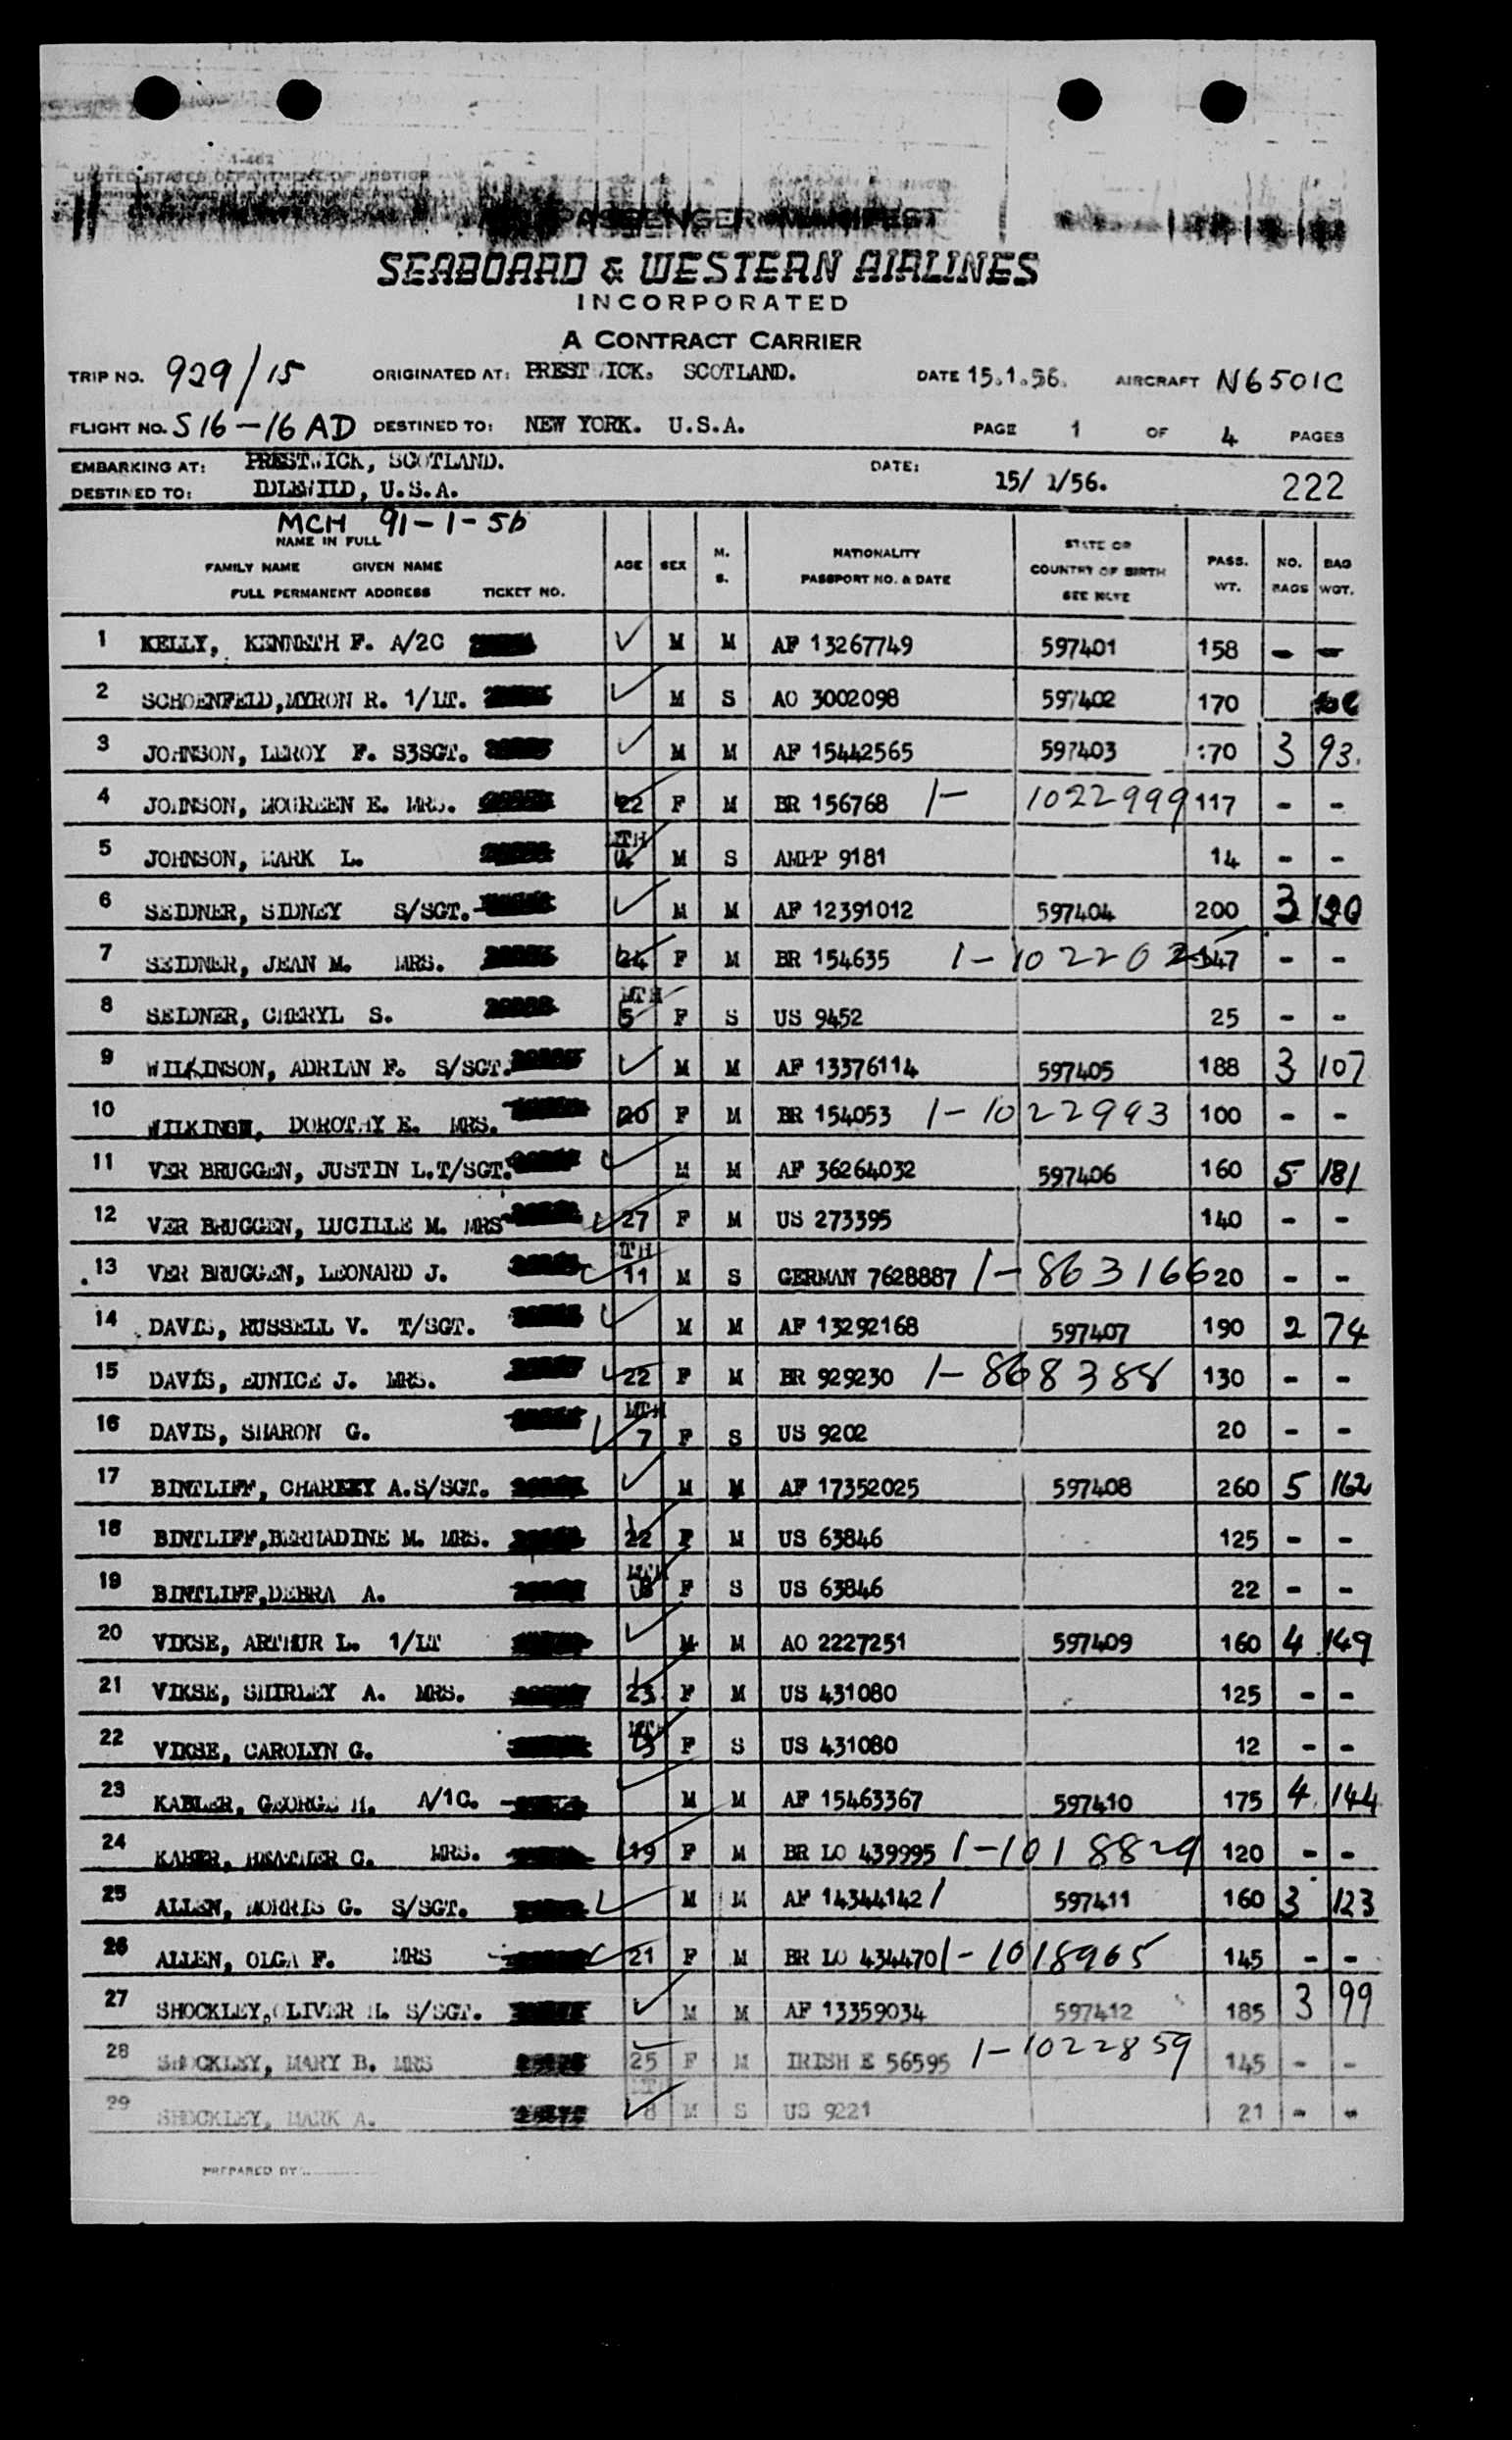 1-462
UNITED STATES DEPARTMENT OF JUSTICE
PASSENGER MANIFEST
SEABOARD & WESTERN AIRLINES
INCORPORATED
A CONTRACT CARRIER
TRIP NO. 929/15 ORIGINATED AT: PRESTWICK. SCOTLAND. DATE 15.1.56. AIRCRAFT N6501C
FLIGHT NO. S16-16AD DESTINED TO: NEW YORK. U.S.A. PAGE 1 OF 4 PAGES
EMBARKING AT: PRESTWICK, SCOTLAND. DATE: 15/ 1/56. 222
DESTINED TO: IDLEWILD, U.S.A.
MCH 91-1-56
NAME IN FULL
FAMILY NAME GIVEN NAME
FULL PERMANENT ADDRESS TICKET NO. AGE SEX M. S. NATIONALITY PASSPORT NO. & DATE STATE OR COUNTRY OF BIRTH SEE NOTE PASS. WT. NO. BAGS BAG WGT.
1 KELLY, KENNETH F. A/2C M M AF 13267749 597401 158 - -
2 SCHOENFELD,MYRON R. 1/LT. M S AO 3002098 597402 170
3 JOHNSON, LEROY F. S3SGT. M M AF 15442565 597403 :70 3 93.
4 JOHNSON, MOUREEN E. MRS. 22 F M BR 156768 1- 1022999 117 - -
5 JOHNSON, MARK L. MTH 4 M S AMPP 9181 14 - -
6 SEIDNER, SIDNEY S/SGT. M M AF 12391012 597404 200 3
7 SEIDNER, JEAN M. MRS. 24 F M BR 154635 147 - -
8 SEIDNER, CHERYL S. MTH 5 F S US 9452 25 - -
9 WILKINSON, ADRIAN F. S/SGT. M M AF 13376114 597405 188 3 107
10 DOROTHY E. MRS. 20 F M BR 154053 1-1022993 100 - -
11 VER BRUGGEN, JUSTIN L.T/SGT. M M AF 36264032 597406 160 5 181
12 VER BRUGGEN, LUCILLE M. MRS 27 F M US 273395 140 - -
13 VER BRUGGEN, LEONARD J. MTH 11 M S GERMAN 7628887 1-863166 20 - -
14 DAVIS, RUSSELL V. T/SGT. M M AF 13292168 597407 190 2 74
15 DAVIS, EUNICE J. MRS. 22 F M BR 929230 1-868388 130 - -
16 DAVIS, SHARON G. MTH 7 F S US 9202 20 - -
17 BINTLIFF, A.S/SGT. M M AF 17352025 597408 260 5 162
18 BINTLIFF,BERNADINE M. MRS. 22 F M US 63846 125 - -
19 BINTLIFF,DEBRA A. MTH F S US 63846 22 - -
20 VIKSE, ARTHUR L. 1/LT M M AO 2227251 597409 160 4 149
21 VIKSE, SHIRLEY A. MRS. 23 F M US 431080 125 - -
22 VIKSE, CAROLYN G. MTH F S US 431080 12 - -
23 KABLER, GEORGE H. A/1C. M M AF 15463367 597410 175 4 144
24 HEATHER C. MRS. 19 F M BR LO 439995 1-1018829 120 - -
25 ALLEN, MORRIS G. S/SGT. M M AF 14344142 597411 160 3 123
26 ALLEN, OLGA F. MRS 21 F M BR LO 434470 1-1018965 145 - -
27 SHOCKLEY,OLIVER H. S/SGT. M M AF 13359034 597412 185 3 99
28 SHOCKLEY, MARY B. MRS 25 F M IRISH E 56595 1-1022859 145 - -
29 SHOCKLEY, MARK A. MTH 8 M S US 9221 21 - -
PREPARED BY